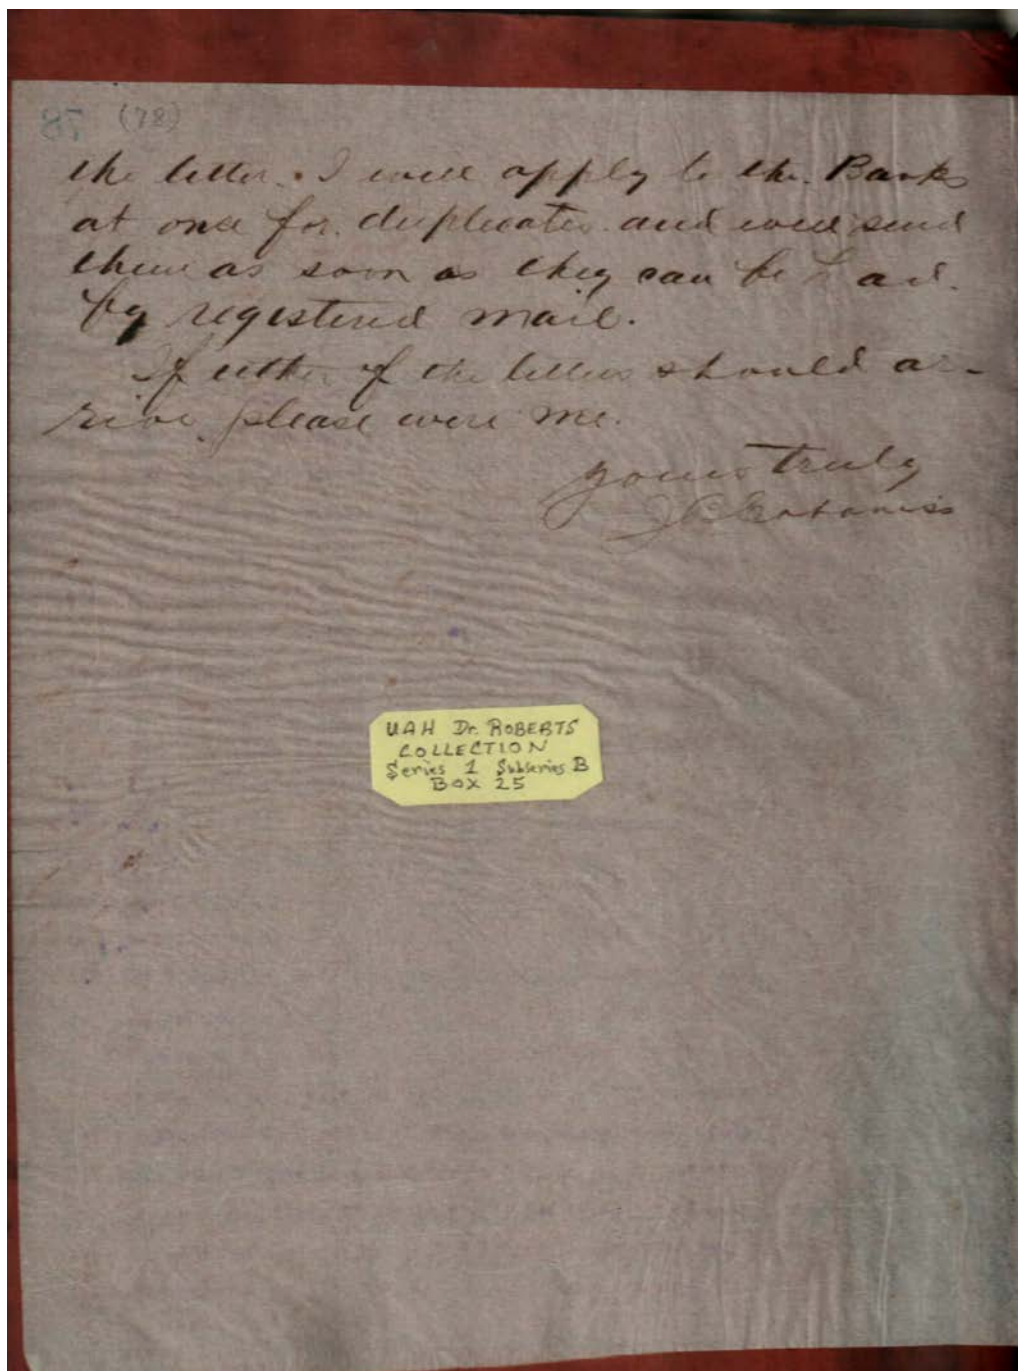 78 (78)
the letter. I will apply to the Banks
at once for duplicates and will send
them as soon as they can be had
by registered mail.
If either of the letters should ar-
rive please wire me.
yours truly
UAH Dr. ROBERTS
COLLECTION
Series 1 Subseries B
Box 25